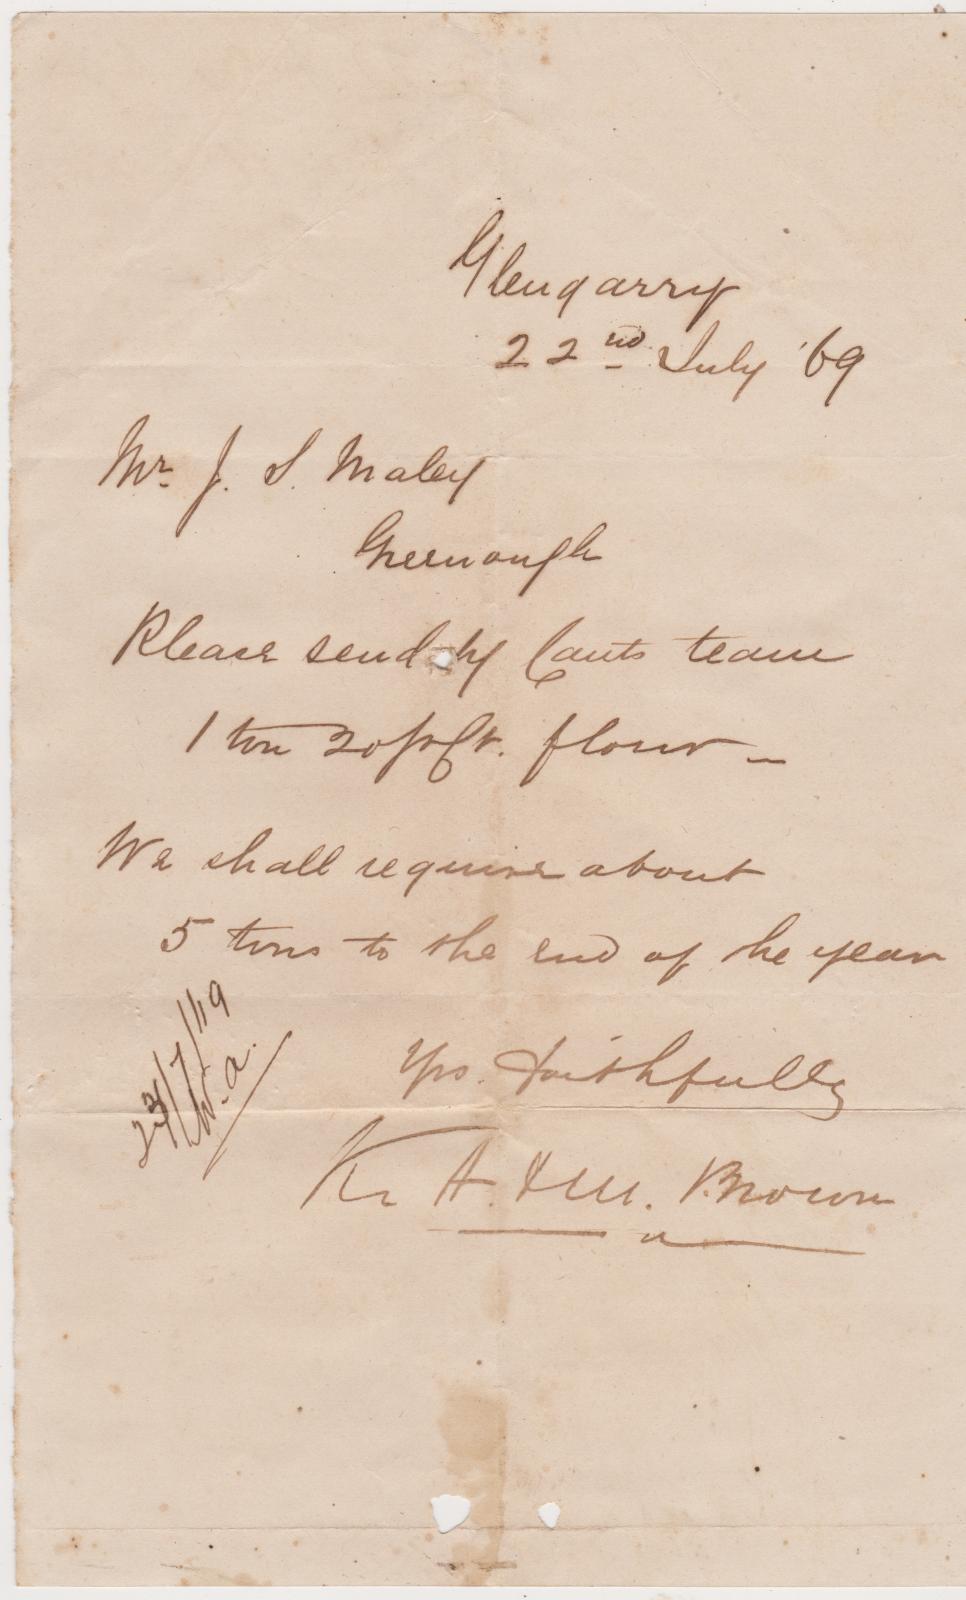 Glengarry
22nd July '69
Mr. J. S. Maley
Greenough
Please send by Cants team
1 ton 20/ p Ct. flour _
We shall require about
5 tons to the end of he year
Yrs. faithfully
K A. & M. Brown
23/7/
W. a.